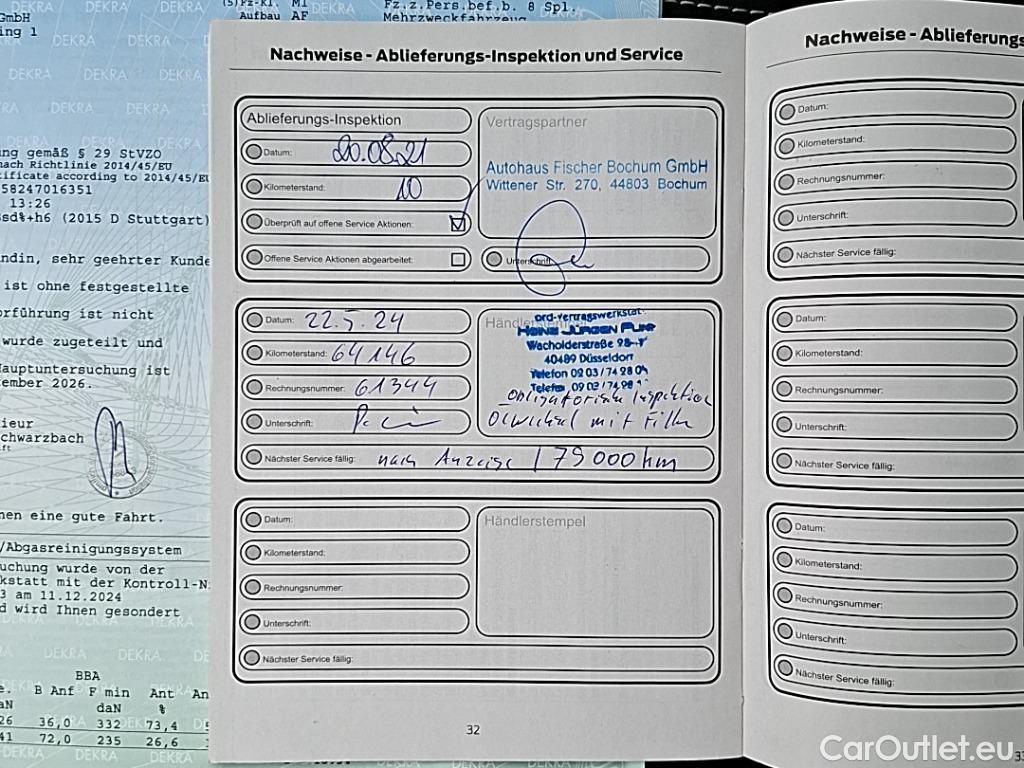 GmbH
ing 1
(5)Fz-Kl. M1
Aufbau AF
Fz.z.Pers.bef.b. 8 Spl.
Mehrzweckfahrzeug
DEKRA
ng gemäß § 29 StVZO
nach Richtlinie 2014/45/EU
tificate according to 2014/45/EU
58247016351
13:26
sd%+h6 (2015 D Stuttgart)
ndin, sehr geehrter Kunde
ist ohne festgestellte
orführung ist nicht
wurde zugeteilt und
Hauptuntersuchung ist
tember 2026.
ieur
chwarzbach
nen eine gute Fahrt.
/Abgasreinigungssystem
uchung wurde von der
kstatt mit der Kontroll-N
3 am 11.12.2024
d wird Ihnen gesondert
BBA
B Anf F min Ant An
daN %
26 36,0 332 73,4
41 72,0 235 26,6
Nachweise - Ablieferungs-Inspektion und Service
Ablieferungs-Inspektion
Datum: 20.08.21
Kilometerstand: 10
Überprüft auf offene Service Aktionen:
Offene Service Aktionen abgearbeitet:
Vertragspartner
Autohaus Fischer Bochum GmbH
Wittener Str. 270, 44803 Bochum
Unterschrift:
Datum: 22.5.24
Kilometerstand: 64146
Rechnungsnummer: 61344
Unterschrift:
Händlerstempel
ord-Vertragswerkstat
Wacholderstraße
40489 Düsseldorf
Telefon 02 03 / 74 28 04
Ölwechsel mit Filter
Nächster Service fällig: nach Anzeige / 79000 km
Datum:
Kilometerstand:
Rechnungsnummer:
Unterschrift:
Händlerstempel
Nächster Service fällig:
32
Nachweise - Ablieferungs
Datum:
Kilometerstand:
Rechnungsnummer:
Unterschrift:
Nächster Service fällig:
Datum:
Kilometerstand:
Rechnungsnummer:
Unterschrift:
Nächster Service fällig:
Datum:
Kilometerstand:
Rechnungsnummer:
Unterschrift:
Nächster Service fällig:
CarOutlet.eu